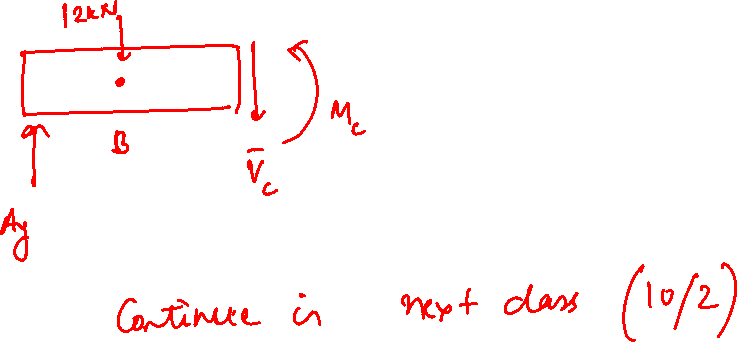 12kN
B
V̄c
Mc
Ay
Continue in next class (10/2)